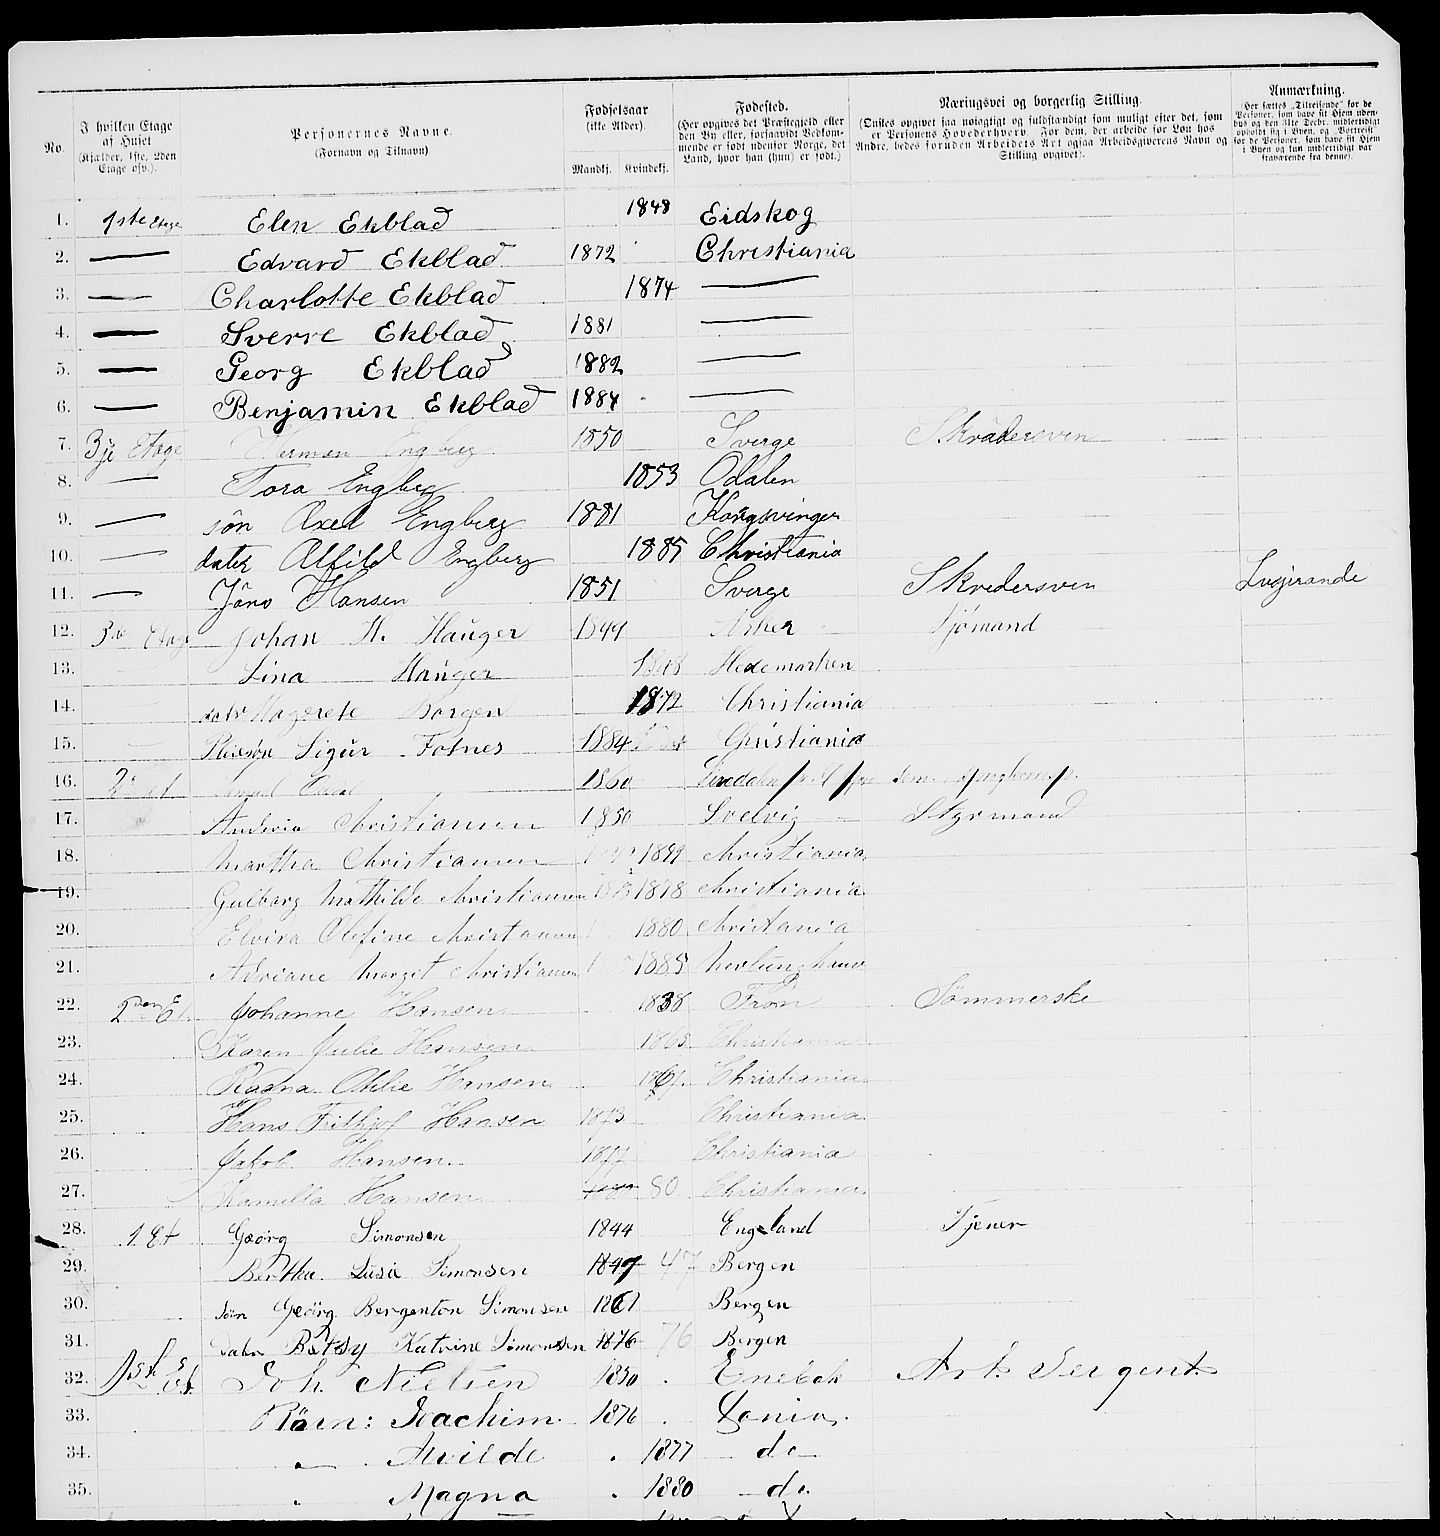 No.
I hvilken Etage af Huset (Kjælder, 1ste, 2den Etage osv.).
Personernes Navne. (Fornavn og Tilnavn)
Fødselsaar (ikke Alder). Mandkj. Kvindekj.
Fødested. (Her opgives det Præstegjeld eller den By eller, forsaavidt Vedkommende er født udenfor Norge, det Land, hvor han (hun) er født.)
Næringsvei og borgerlig Stilling. (Ønskes opgivet saa nøiagtigt og fuldstændigt som muligt efter det, som er Personens Hovederhverv. For dem, der arbeide for Løn hos Andre, bedes foruden Arbeidets Art ogsaa Arbeidsgiverens Navn og Stilling opgivet).
Anmærkning. (Her sættes „Tilreisende" for de Personer, som have sit Hjem udenbys og den 31te Decbr. midlertidigt opholdt sig i Byen, og „Bortreist" for de Personer, som have sit Hjem i Byen og kun midlertidigt var fraværende fra denne).
1. 1ste Etage Elen Ekblad 1848 Eidskog
2. — Edvard Ekblad 1872 Christiania
3. — Charlotte Ekblad 1874 —
4. — Sverre Ekblad 1881 —
5. — Georg Ekblad 1882 —
6. — Benjamin Ekblad 1884 —
7. 3je Etage Herman Engberg 1850 Sverge Skrädersven
8. — Tora Engberg 1853 Odalen
9. — sön Axel Engberg 1881 Kongsvinger
10. — dater Alfild Engberg 1885 Christiania
11. — Jöns Hansen 1851 Sverge Skredersven Lusjirande
12. 3die Etage Johan H. Hauger 1849 Asker Sjömand
13. Lina Hauger 1848 Hedemarken
14. datr Magrete Borgen 1872 Christiania
15. Pleiesøn Sigur Fotnes 1884 Christiania
16. 2 Et 1860
17. Christiansen 1850 Svelvig Styrmand
18. Martha Christiansen 1899 Christiania
19. Gulborg Mathilde Christiansen 1878 Christiania
20. Elvira Olefine Christiansen 1880 Christiania
21. Adriane Margit Christiansen 1885
22. 2den Et. Johanne Hansen 1838 Fron Sömmerske
23. Karen Julie Hansen 1865 Christiania
24. Ragna Hansen Christiania
25. Hans Frithjof Hansen 1873 Christiania
26. Jakob Hansen 1877 Christiania
27. Kamilla Hansen 80 Christiania
28. 1 Et Georg Simonsen 1844 England Tjener
29. Bertha Lusie Simonsen 1847 47 Bergen
30. sön Georg Bergenton Simonsen 1861 Bergen
31. Datr Betsy Katrine Simonsen 1876 76 Bergen
32. 1ste Et. Joh. Nielsen 1850 Enebak Art. Sergent
33. Börn: Joachim 1876 Xania.
34. " Alvilde 1877 do
35. " Magna 1880 do